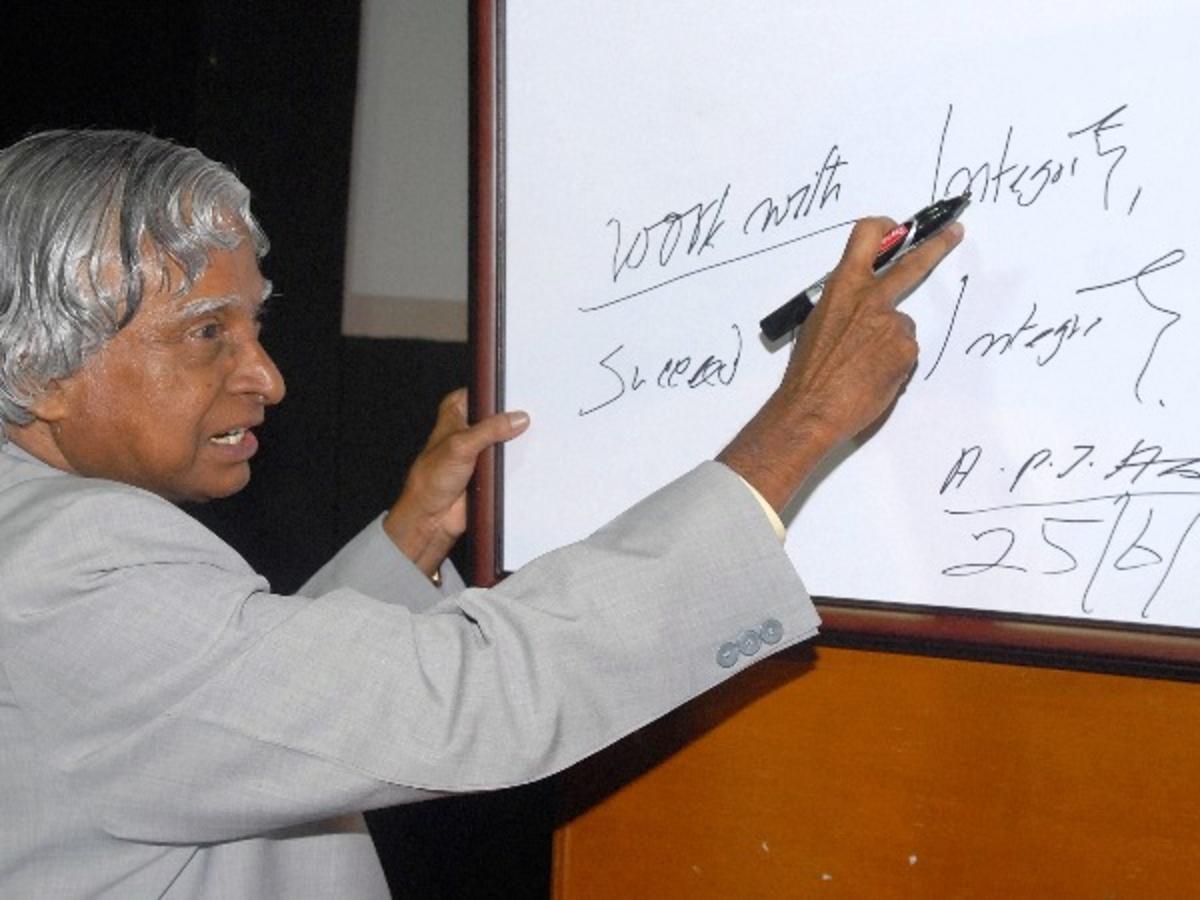 Work with Integrity,
Succeed Integrity.
A.P.J. Az
25/6/